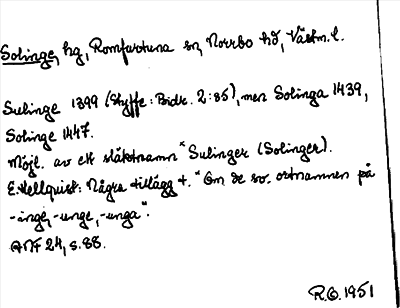 Solinge, hg, Romfartuna sn, Norrbo hd, Västm. l.
Sulinge 1399 (Styffe: Bidr. 2:85), men Solinga 1439,
Solinge 1447.
Möjl. av ett släktnamn *Sulinger (Solinger).
E. Hellquist: Några tillägg t. "Om de sv. ortnamnen på
-inge, -unge, -unga".
ANF 24, s. 88.
R.O. 1951